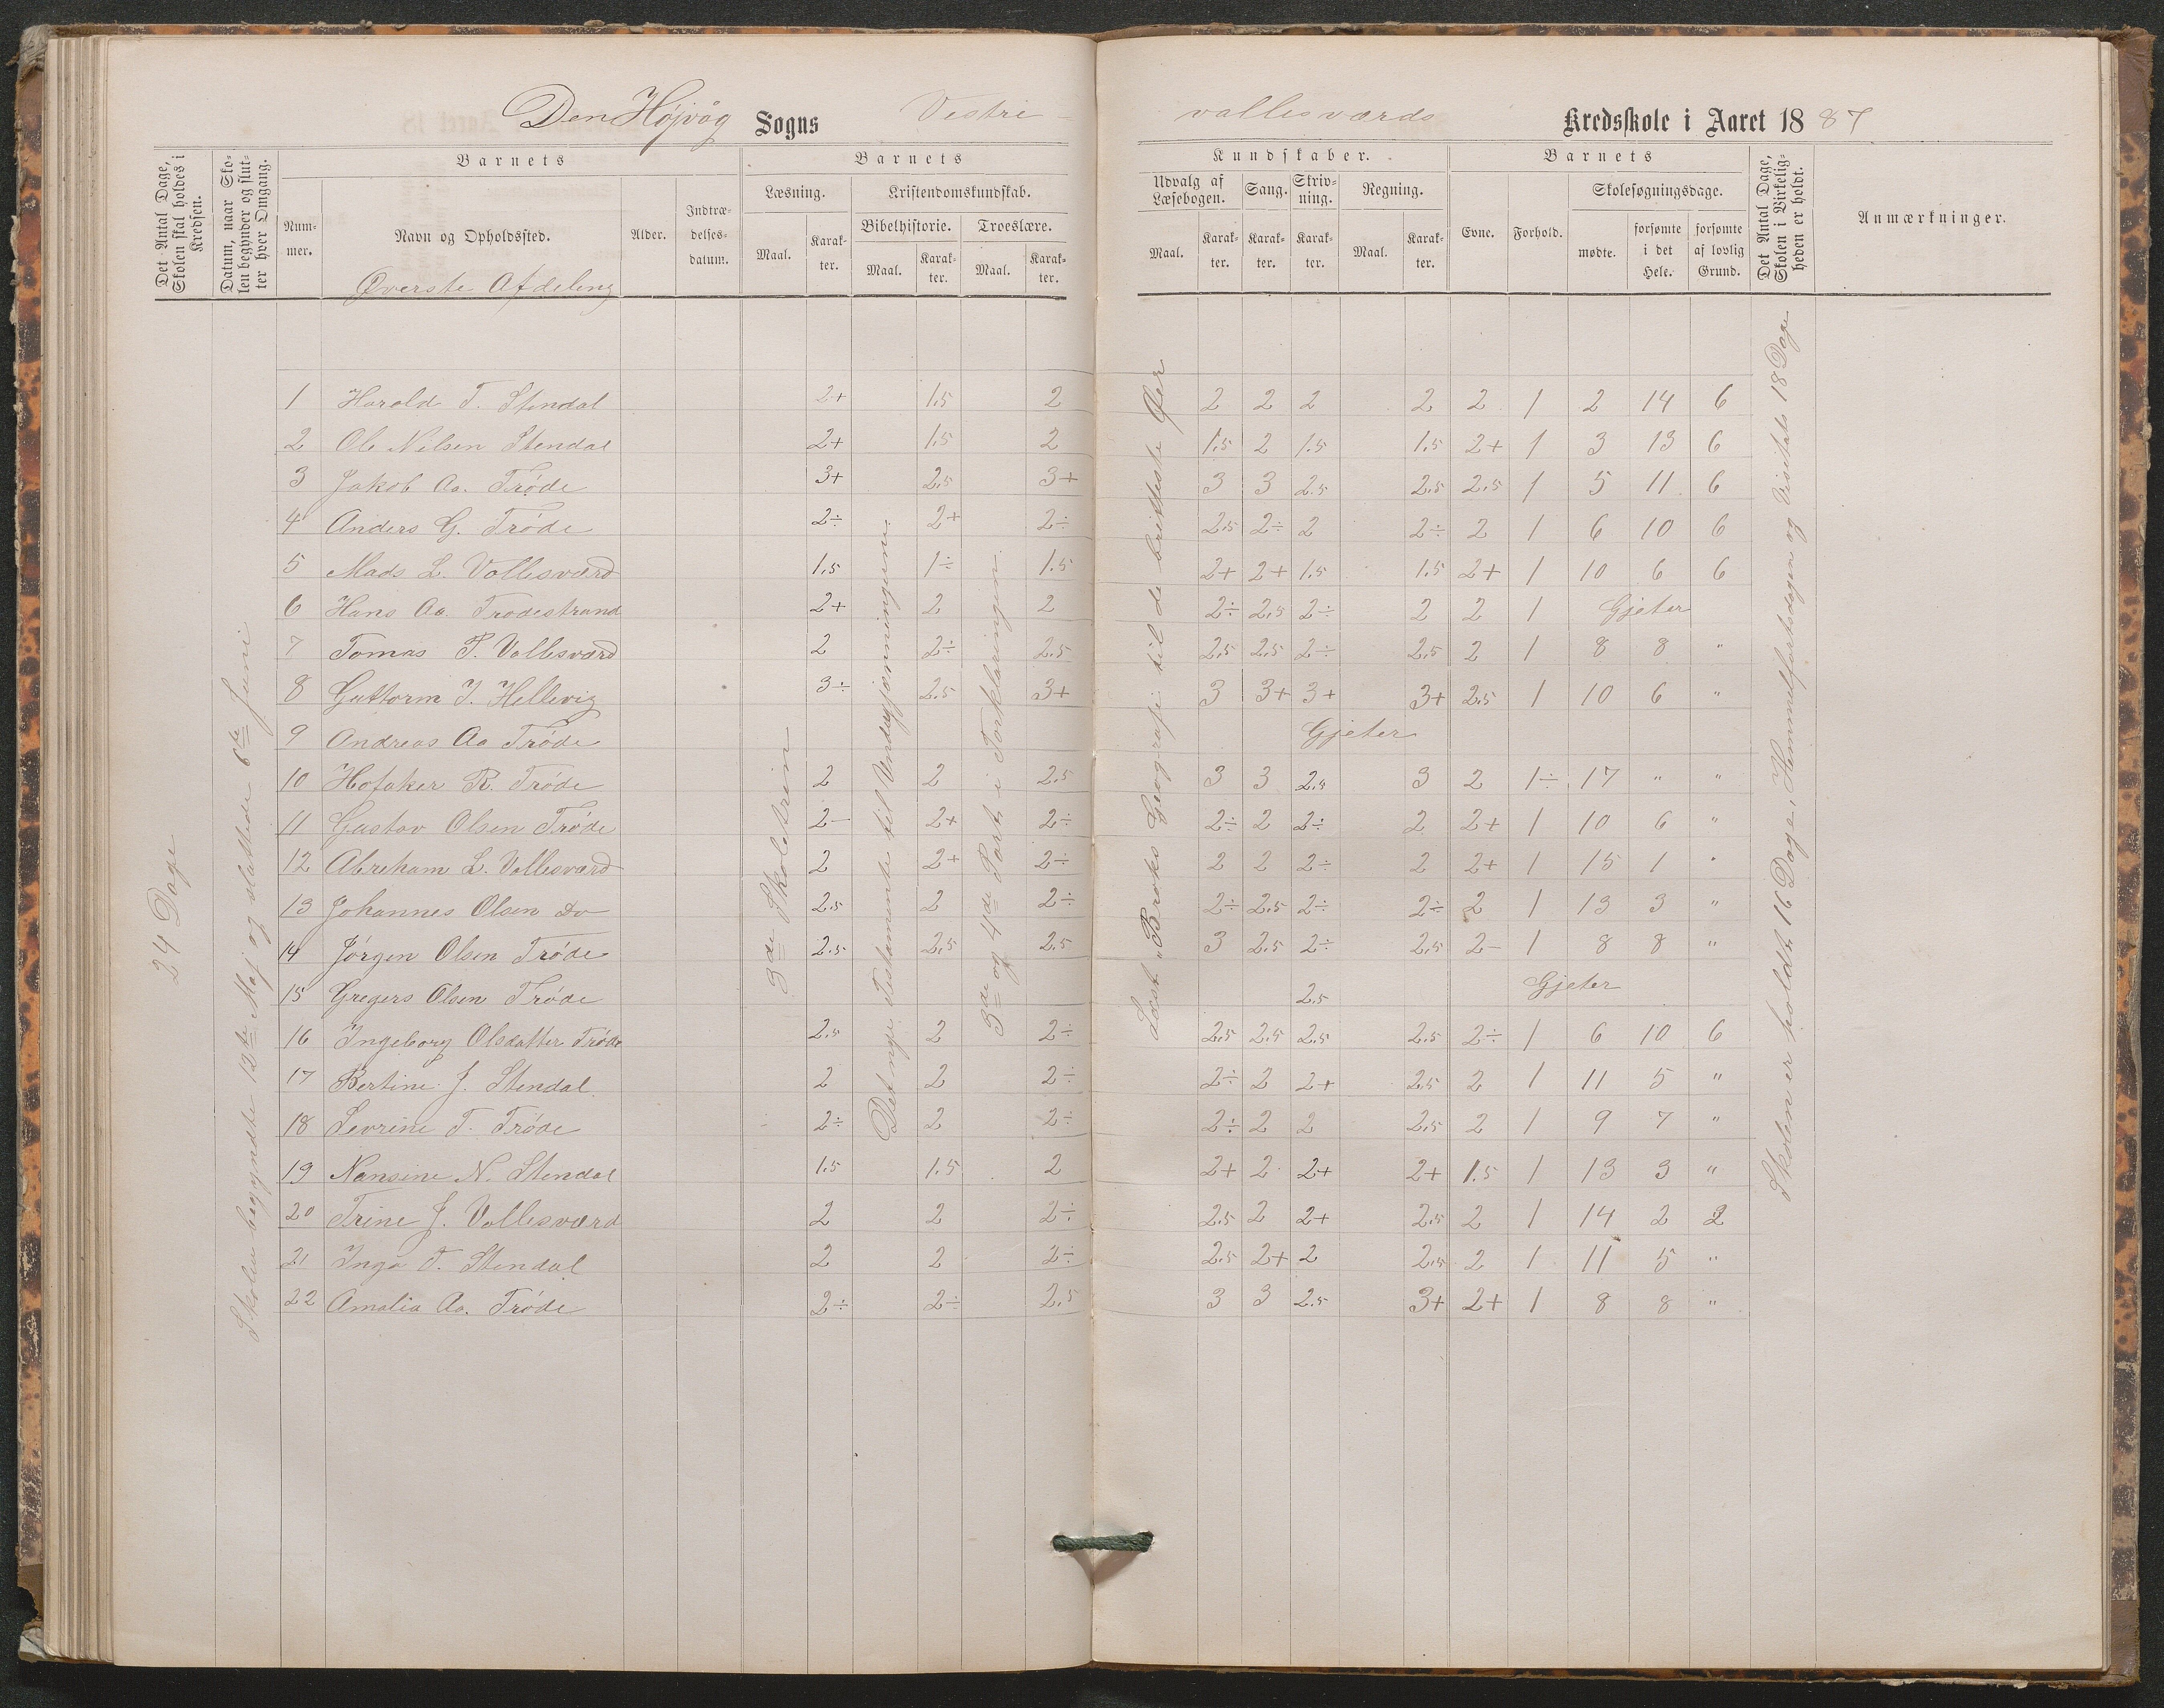 Den Højvåg Sogns Vestre - vallesværds Kredsskole i Aaret 1887
Det Antal Dage, Skolen skal holdes i Kredsen.
Datum, naar Skolen begynder og slutter hver Omgang.
Barnets
Nummer.
Navn og Opholdssted.
Øverste Afdeling
Alder.
Indtrædelsesdatum.
Barnets
Læsning.
Maal.
Karakter.
Kristendomskundskab.
Bibelhistorie.
Maal.
Karakter.
Troeslære.
Maal.
Karakter.
Kundskaber.
Udvalg af Læsebogen.
Maal.
Karakter.
Sang.
Karakter.
Skrivning.
Karakter.
Regning.
Maal.
Karakter.
Barnets
Evne.
Forhold.
Skolesøgningsdage.
mødte.
forsømte i det Hele.
forsømte af lovlig Grund.
Det Antal Dage, Skolen i Virkeligheden er holdt.
Anmærkninger.
24 Dage
Skolen begyndte 12te Maj og sluttede 6te Juni
3de Skoletrin
Det nye Testamente til Undergjerningerne
3de og 4de Part i Forklaringen.
Læst "Broks Geografi til de brittiske Øer
Skolen er holdt 16 Dage, Himmelfartsdagen og Visitats 18 Dage
1 Harald T. Stendal 2+ 1.5 2 2 2 2 2 2 1 2 14 6
2 Ole Nilsen Stendal 2+ 1.5 2 1.5 2 1.5 1.5 2+ 1 3 13 6
3 Jakob Aa. Trøde 3+ 2.5 3+ 3 3 2.5 2.5 2.5 1 5 11 6
4 Anders G. Trøde 2÷ 2+ 2÷ 2.5 2÷ 2 2÷ 2 1 6 10 6
5 Mads L. Vallesværd 1.5 1÷ 1.5 2+ 2+ 1.5 1.5 2+ 1 10 6 6
6 Hans Aa. Trødestrand 2+ 2 2 2÷ 2.5 2÷ 2 2 1 Gjeter
7 Tomas P. Vallesværd 2 2÷ 2.5 2.5 2.5 2÷ 2.5 2 1 8 8 "
8 Guttorm J. Hellevig 3÷ 2.5 3+ 3 3+ 3+ 3+ 2.5 1 10 6 "
9 Andreas Aa Trøde Gjeter
10 Hofaker R. Trøde 2 2 2.5 3 3 2.5 3 2 1÷ 17 " "
11 Gustav Olsen Trøde 2- 2+ 2÷ 2÷ 2 2÷ 2 2+ 1 10 6 "
12 Abreham L. Vallesværd 2 2+ 2÷ 2 2 2÷ 2 2+ 1 15 1 "
13 Johannes Olsen Do 2.5 2 2÷ 2÷ 2.5 2÷ 2÷ 2 1 13 3 "
14 Jørgen Olsen Trøde 2.5 2.5 2.5 3 2.5 2÷ 2.5 2- 1 8 8 "
15 Gregers Olsen Trøde 2.5 Gjeter
16 Ingeborg Olsdatter Trøde 2.5 2 2÷ 2.5 2.5 2.5 2.5 2÷ 1 6 10 6
17 Bertine J. Stendal 2 2 2÷ 2÷ 2 2+ 2.5 2 1 11 5 "
18 Sevrine T. Trøde 2÷ 2 2÷ 2÷ 2 2 2.5 2 1 9 7 "
19 Nansine N. Stendal 1.5 1.5 2 2+ 2 2+ 2+ 1.5 1 13 3 "
20 Trine J. Vallesværd 2 2 2÷ 2.5 2 2+ 2.5 2 1 14 2 2
21 Inga T. Stendal 2 2 2÷ 2.5 2+ 2 2.5 2 1 11 5 "
22 Amalia Aa. Trøde 2÷ 2÷ 2.5 3 3 2.5 3+ 2+ 1 8 8 "